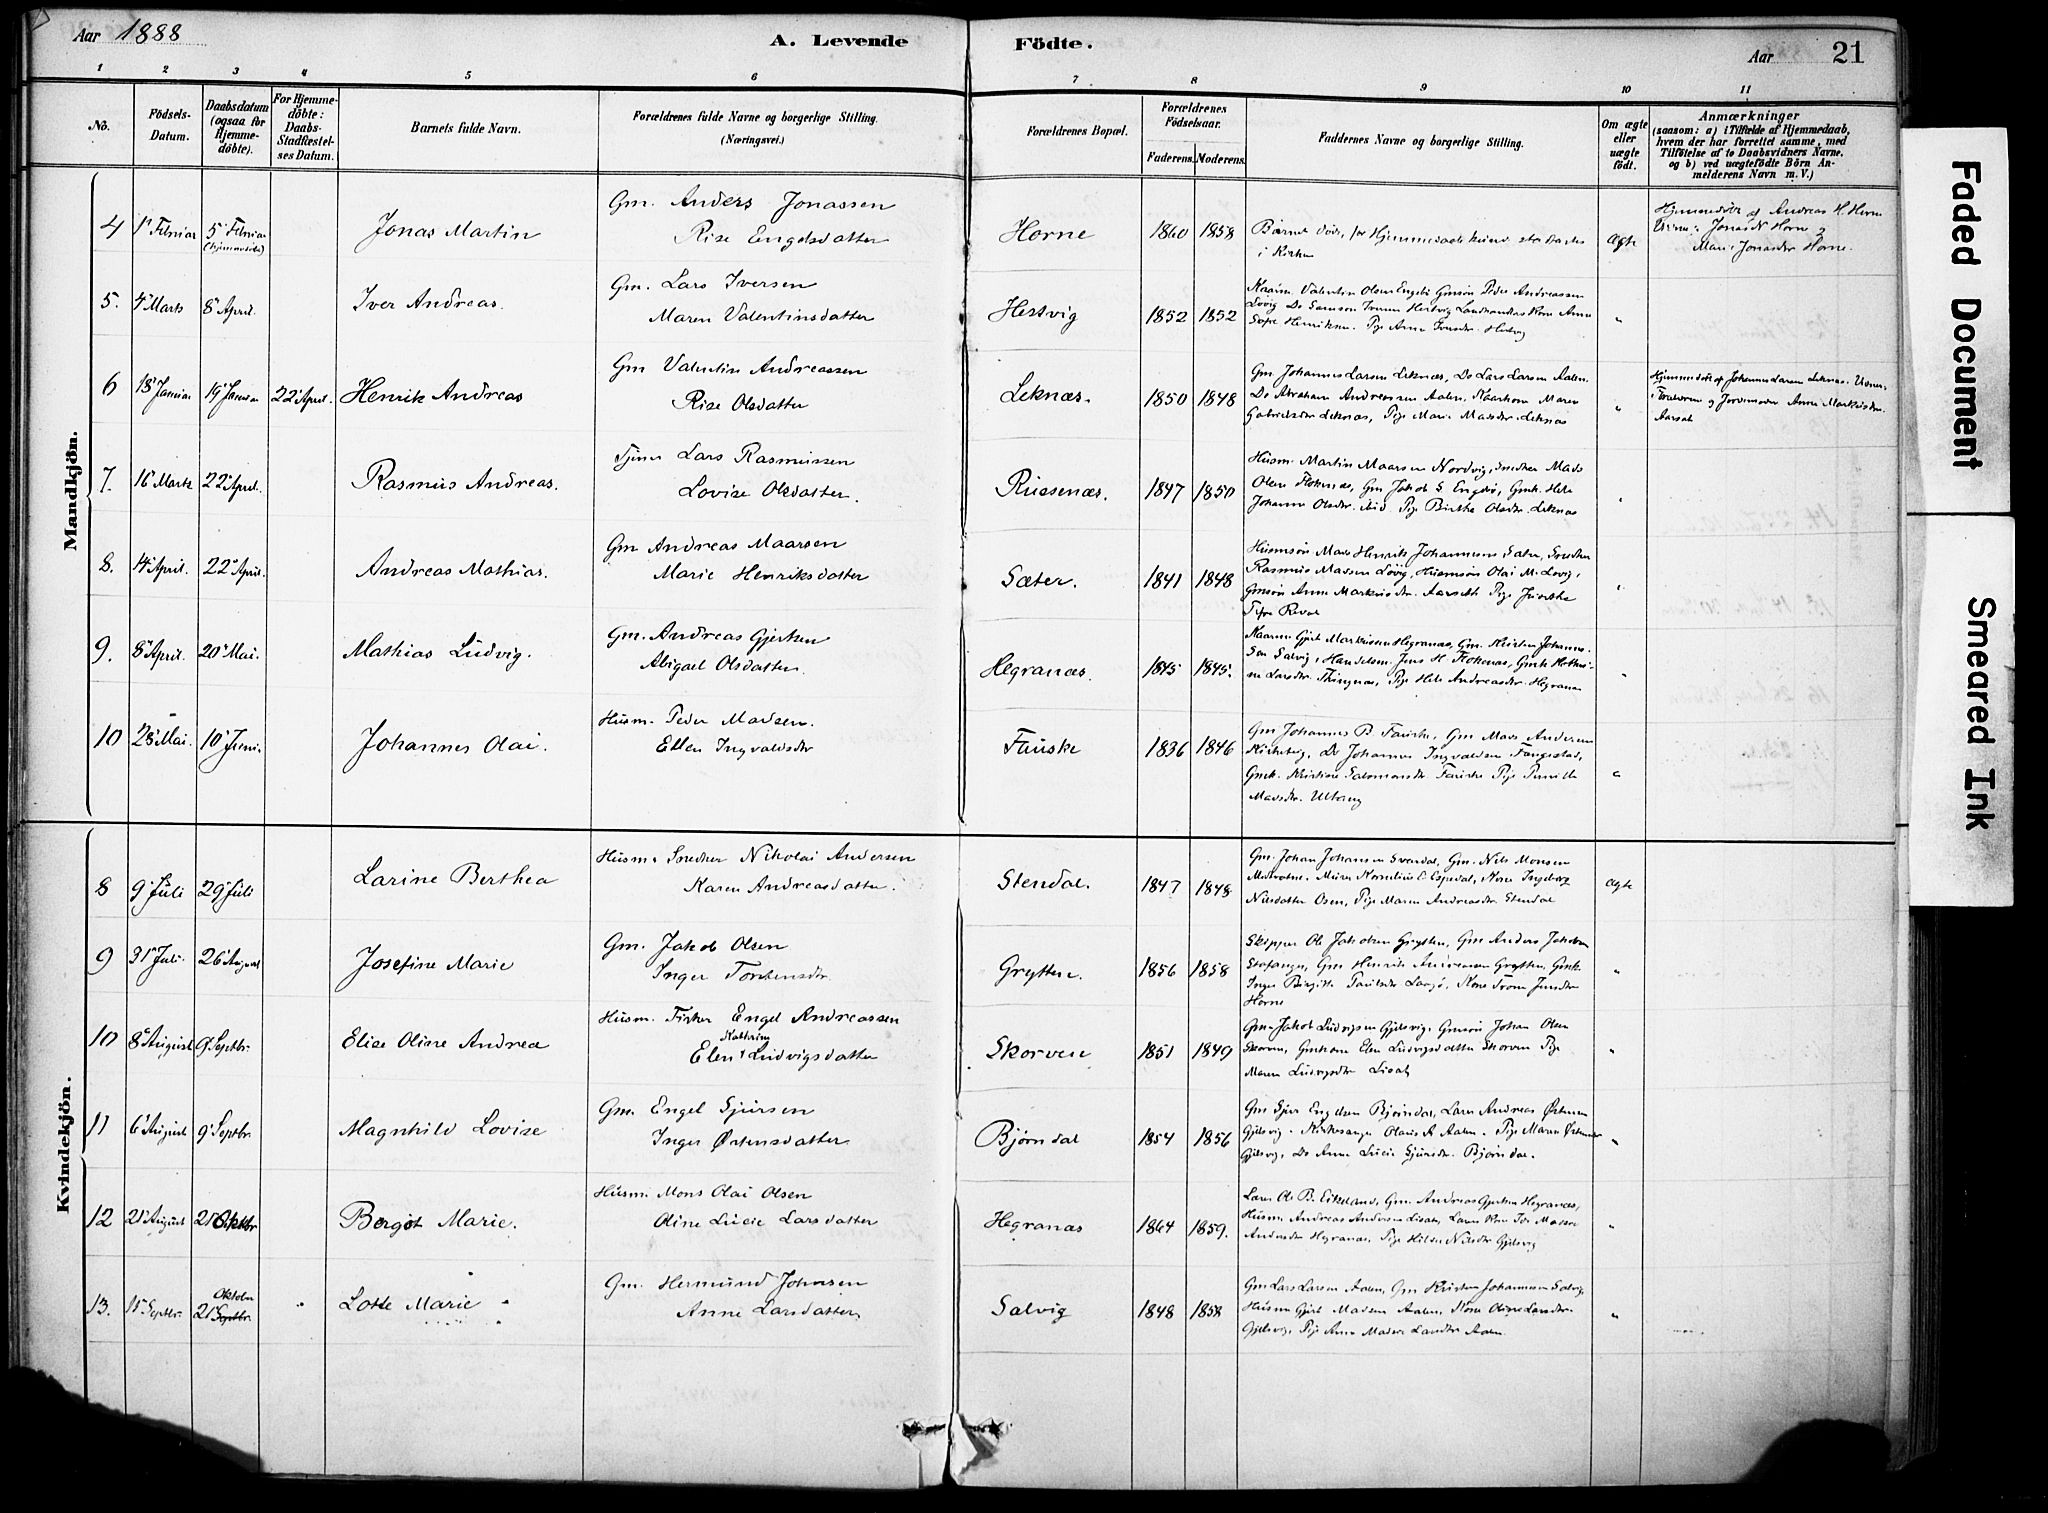 Aar 1888
A. Levende
Födte.
Aar
21
1 2 3 4 5 6 7 8 9 10 11
No.
Födsels-
Datum.
Daabsdatum
(ogsaa for
Hjemme-
döbte).
For Hjemme-
döbte:
Daabs-
Stadfæstel-
ses Datum.
Barnets fulde Navn.
Forældrenes fulde Navne og borgerlige Stilling.
(Næringsvei.)
Forældrenes Bopæl.
Forældrenes
Födselsaar.
Faderens. Moderens.
Faddernes Navne og borgerlige Stilling.
Om ægte
eller
uægte
födt.
Anmærkninger
(saasom: a) i Tilfælde af Hjemmedaab,
hvem der har forrettet samme, med
Tilföielse af to Daabsvidners Navne,
og b) ved uægtefödte Börn An-
melderens Navn m. V.)
Mandkjön.
4 1 Februar 5 Februar (hjemmedöbt) Jonas Martin
Gm. Anders Jonassen
Rise Engelsdatter
Horne 1860 1858
Barnet døde, før Hjemmedaaben
i Kirken
Ægte
Hjemmedøbt af Andreas H. Horne
Jonas N Horne
Marie Jonasdtr Horne.
5. 4 Marts 8 April. Iver Andreas.
Gm. Lars Iversen
Maren Valentinsdatter
Hestvig 1852 1852
Kaarm. Valentin Olsen Gmsøn Peder Andreassen
Løvig Do Samson Hestvig Kone Anne
Henriksen. Pige Anne Hestvig
"
6 18 Januar 19 Januar 22 April. Henrik Andreas
Gm Valentin Andreassen
Rise Olsdatter
Leknæs. 1850 1848
Gm Johannes Larsen Leknæs, Do Lars Larsen Aalen.
Do Abraham Andreassen Aalen, Kaarkone Maren
Gabrielsdtr Leknæs, Pige Marie Madsdtr. Leknæs
"
Hjemmedøbt af Johannes Larsen Leknæs.
og Jordmoder Anne Markusdtr.
Aarsæt
7. 16 Marts 22 April. Rasmus Andreas.
Lars Rasmussen
Lovise Olsdatter.
Russenæs. 1847 1850
Husm. Martin Maarsen Nordvig, Snedker Mads
Olsen Flokenæs, Gm Jakob S. Engebø, Gmk. Hele
Johanne Olsdtr. ibid. Pige Birthe Olsdtr. Leknæs
"
8. 14 April. 22 April. Andreas Mathias.
Gm Andreas Maarsen
Marie Henriksdatter
Sæter. 1841 1848
Husmsøn Mads Henrik Johannesen Sæter, Snedker
Rasmus Madsen Løvig, Husmsøn Olai M. Løvig,
Gmsøn Anne Markusdtr. Aarseth Pige
"
9. 8 April. 20 Mai. Mathias Ludvig.
Gm. Andreas Gjertsen
Abigael Olsdatter.
Hegranæs. 1845 1845.
Kaarm Gjert Markussen Hegranæs, Gm. Kristen Johannes-
sen Salvig, Handelsm. Jens H Flokenæs, Gmk
Larsdtr. Pige Hele Andreasdtr. Hegranæs
"
10 28 Mai. 10 Juni. Johannes Olai.
Husm. Peder Madsen.
Ellen Ingvaldsdtr
Fauske 1836 1846
Gm Johannes B. Fauske, Gm Mads Andersen
Do Johannes Ingvaldsen Fangestad,
Gmk. Kristine Salomonsdtr Fauske Pige Pernille
Madsdtr.
"
Kvindekjön.
8 9 Juli 29 Juli Larine Berthea
Husm. Snedker Nikolai Andersen
Karen Andreasdatter.
Stendal. 1847 1848
Gm. Johan Johansen Svardal, Gm. Nils Monsen
Kornelius E Espedal, Kone Ingeborg
Nilsdatter Osen, Pige Maren Andreasdtr Stendal
Ægte
9 31 Juli. 26 August Josefine Marie
Gm. Jakob Olsen
Inger Torstensdtr.
Grytten. 1856 1858
Skipper Ole Jakobsen Grytten, Gm Anders Jakobsen
Stafanger, Gm Henrik Andreassen Grytten, Gmk.
Inger Birgitte Kone
Horne
"
10 8 August 9 Septbr. Elise Oline Andrea
Husm. Fisker Engel Andreassen
Kathrine
Elen Ludvigsdatter
Skorven 1851 1849
Gm Jakob Ludvigsen Gjelsvig, Gmsøn Johan Olsen
Skorven, Gmkone Elen Ludvigsdatter Skorven Pige
Maren Ludvigsdtr Lisæt
"
11 6 August 9 Septbr. Magnhild Lovise
Gm. Engel Sjursen
Inger Østensdatter
Bjørndal 1854 1856
Gm Sjur Engelsen Bjørndal, Lærer Andreas Østensen
Gjelsvig. Kirkesanger Olaus A Aalen. Pige Maren Østensdtr
Gjelsvig, Do Anne Lucie Sjursdtr. Bjørndal.
"
12 21 August 21 Oktbr Bergit Marie.
Husm. Mons Olai Olsen
Oline Lucie Larsdatter
Hegranæs 1864 1859.
Lærer Ole B. Eikeland, Gm. Andreas Gjertsen Hegranæs,
Husm. Andreas Andersen Lisæt,
Andersdtr Hegranæs, Pige Hilda Nilsdtr Gjelsvig
"
13. 15 Septbr. Oktober 21 Septbr. " Lotte Marie "
Gm. Hermund Johnsen
Anne Larsdatter,
Salvig 1848 1858
Gm Lars Larsen Aalen, Gm Kristen Johannessen Salvig,
Husm Gjert Madsen Aalen, Kone Oline Larsdtr.
Gjelsvig, Pige Anne Madsine Larsdtr Aalen
"
Faded Document
Smeared Ink